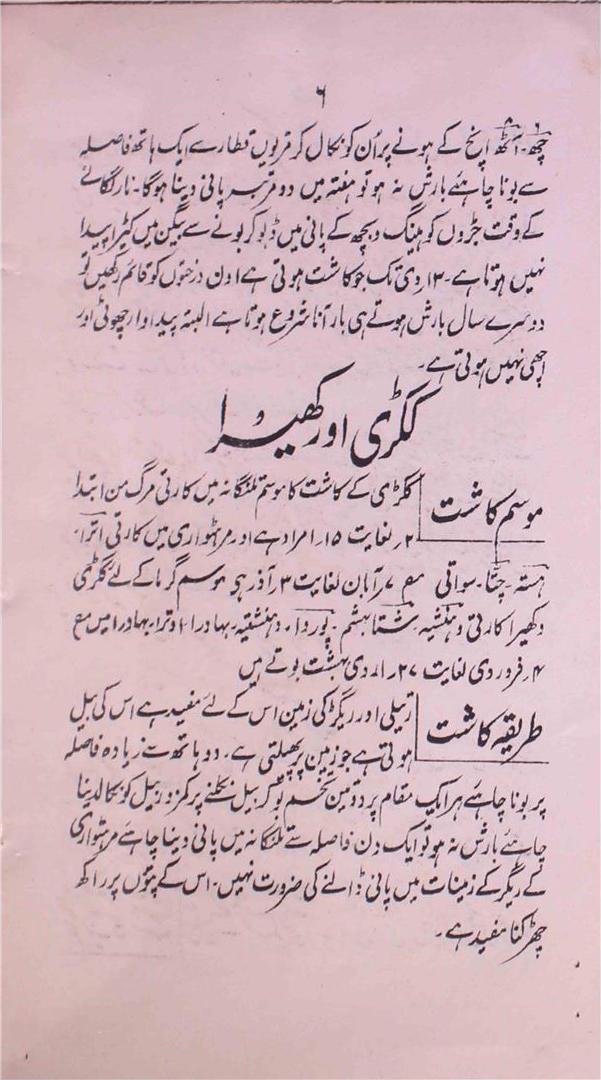 ۶
چھ۔ آٹھ اِنچ کے ہونے پر اُن کو نکال کر قریوں قطار سے ایک ہاتھ فاصلہ
سے بونا چاہئے بارش نہ ہو تو ہفتہ میں دو مرتبہ پانی دینا ہوگا۔ نار لگائے
کے وقت جڑوں کو ہینگ دیجھ کے پانی میں ڈبو کر بونے سے بیگن میں کیڑا پیدا
نہیں ہوتا ہے۔ ۱۳؍دی تک جو کاشت ہوتی ہے اون درختوں کو قائم رکھیں تو
دوسرے سال بارش ہوتے ہی بار آنا شروع ہوتا ہے البتہ پیداوار چھوٹی اور
اچھی نہیں ہوتی ہے۔
ککڑی اور کھیرا
موسم کاشت
ککڑی کے کاشت کا موسم تلنگانہ میں کارتی مرگ من ابتدا
۲؍ لغایت ۱۵؍ امرداد ہے اور مرہٹواری میں کارتی اترا۔
ہستہ۔ چتا۔ سواتی مع ۷؍ آبان لغایت ۳؍ آذر ہی موسم گرما کے لئے ککڑی
وکھیرا کارتی دہنشیہ۔ شتابہشم۔ پوردا۔ دہنشتیہ۔ بہادرا اوترا۔ بہادرا میں مع
۴؍ فروردی لغایت ۲۷؍ اردی بہشت بوتے ہیں
طریقہ کاشت
رتیلی اور ریگڑ کی زمین اس کے لئے مفید ہے اس کی بیل
ہوتی ہے جو زمین پر پھیلتی ہے۔ دو ہاتھ سے زیادہ فاصلہ
پر بونا چاہئے ہر ایک مقام پر دو تین تخم بو کر بیل نکلنے پر کمزور بیل کو نکالدینا
چاہئے بارش نہ ہو تو ایک دن فاصلہ سے تلنگانہ میں پانی دینا چاہئے مرہٹواری
کے ریگڑ کے زمینات میں پانی ڈالنے کی ضرورت نہیں۔ اس کے پتوں پر راکھ
چھڑکنا مفید ہے۔